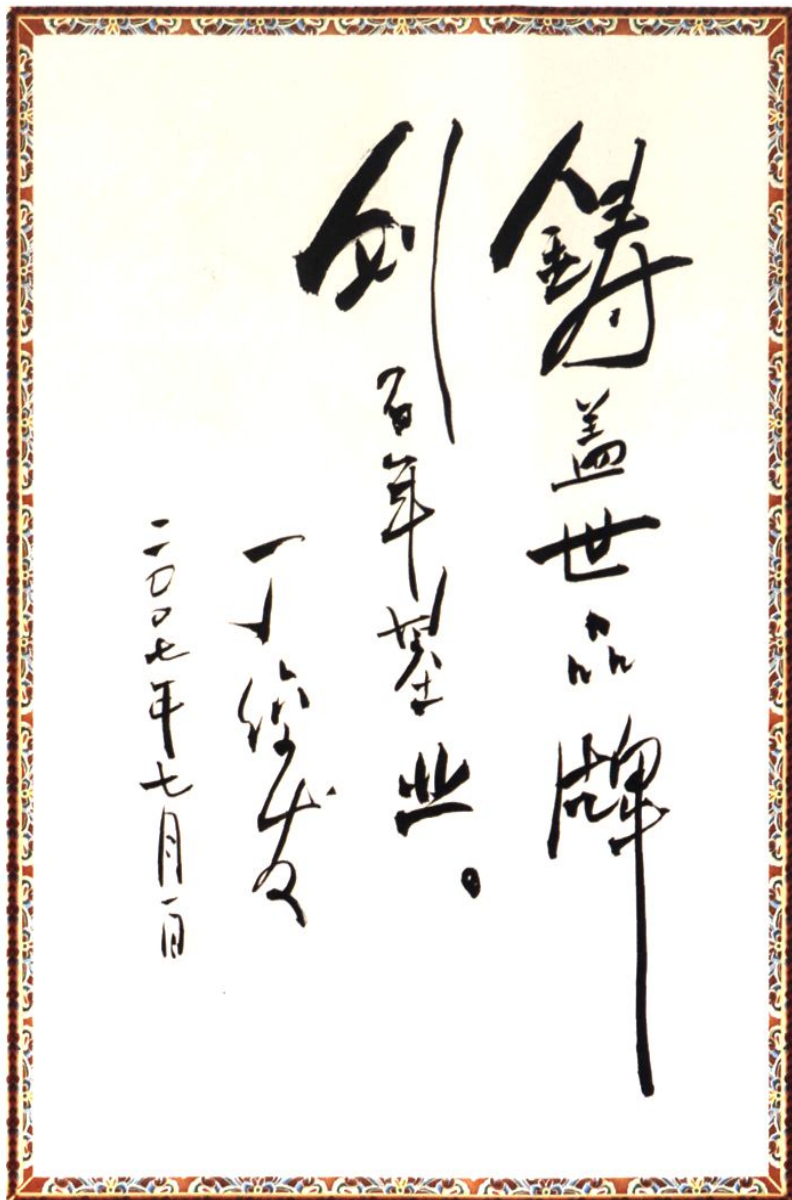 铸盖世品牌
创百年基业。
丁俊发
二〇〇七年七月一日